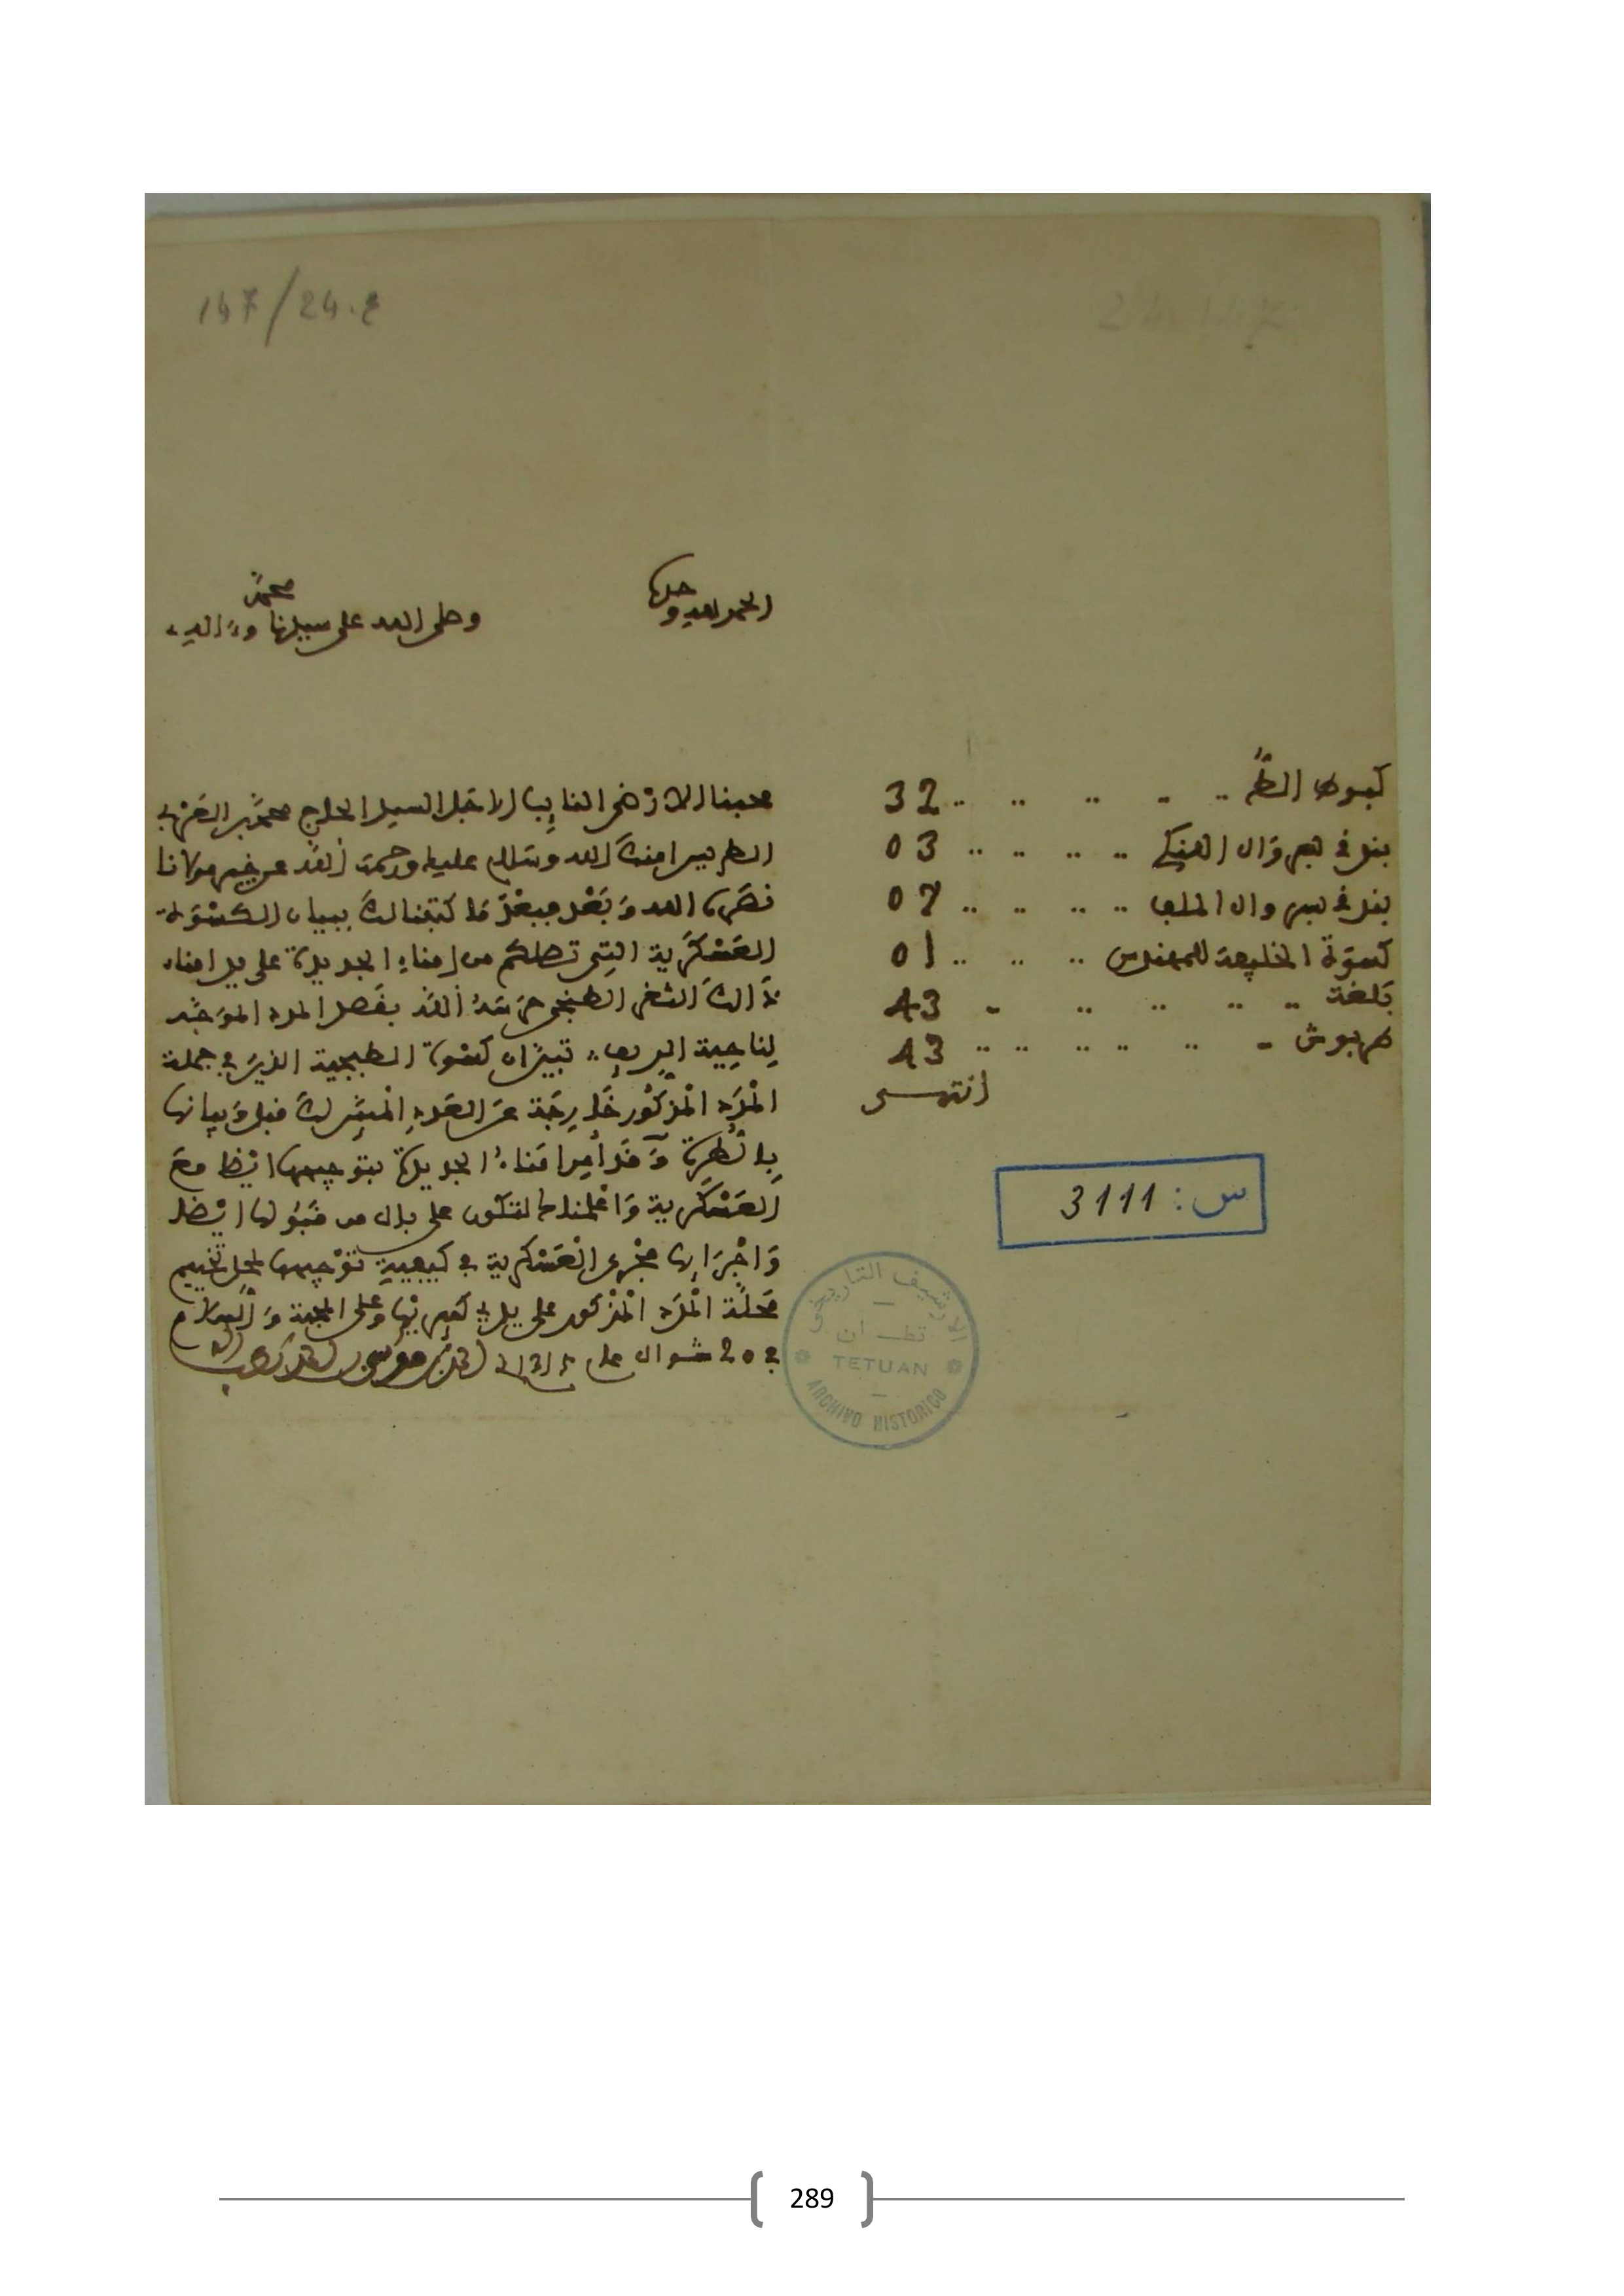 147/24.ع
الحمد لله وحده
وصلى الله على سيدنا محمد وءاله
محبنا الارضى النايب الاجل السيد الحاج محمد بن العربي
الطريس امنك الله وسلام عليك ورحمت الله عن خير مولانا
نصره الله وبعد فبعد ما كتبنا لك ببيان الكسوة
العسكرية التي تصلكم من امناء الجديدة على يد امناء
ذالك الثغر الطنجي حرسه الله بقصد المدد الموجه
لناحية الريف تبين ان كسوة الطبجية الذين في جملة
المدد المذكور خارجة عن العدد المبين لك قبل وبيانها
بالطرة وقد أمر امناء الجديدة بتوجيهها ايضا مع
العسكرية واعلمناك لتكون على بال من قبولها ايضا
واجرايها مجرى العسكرية في كيفية توجيهها لمحل تخييم
محلة المدد المذكور على يد كبرائها وعلى المحبة والسلام
في 20 شوال عام احمد بن موسى لطف الله به
كبوط الملف .. .. .. .. .. 32
.. .. .. .. 03
.. .. .. .. 07
كسوة الخليفة المهندس .. .. .. 01
بلغة .. .. .. .. .. 43
طربوش .. .. .. .. .. .. 43
انتهى
س : 3111
الارشيف التاريخي
تطـــوان
TETUAN
ARCHIVO HISTORICO
289